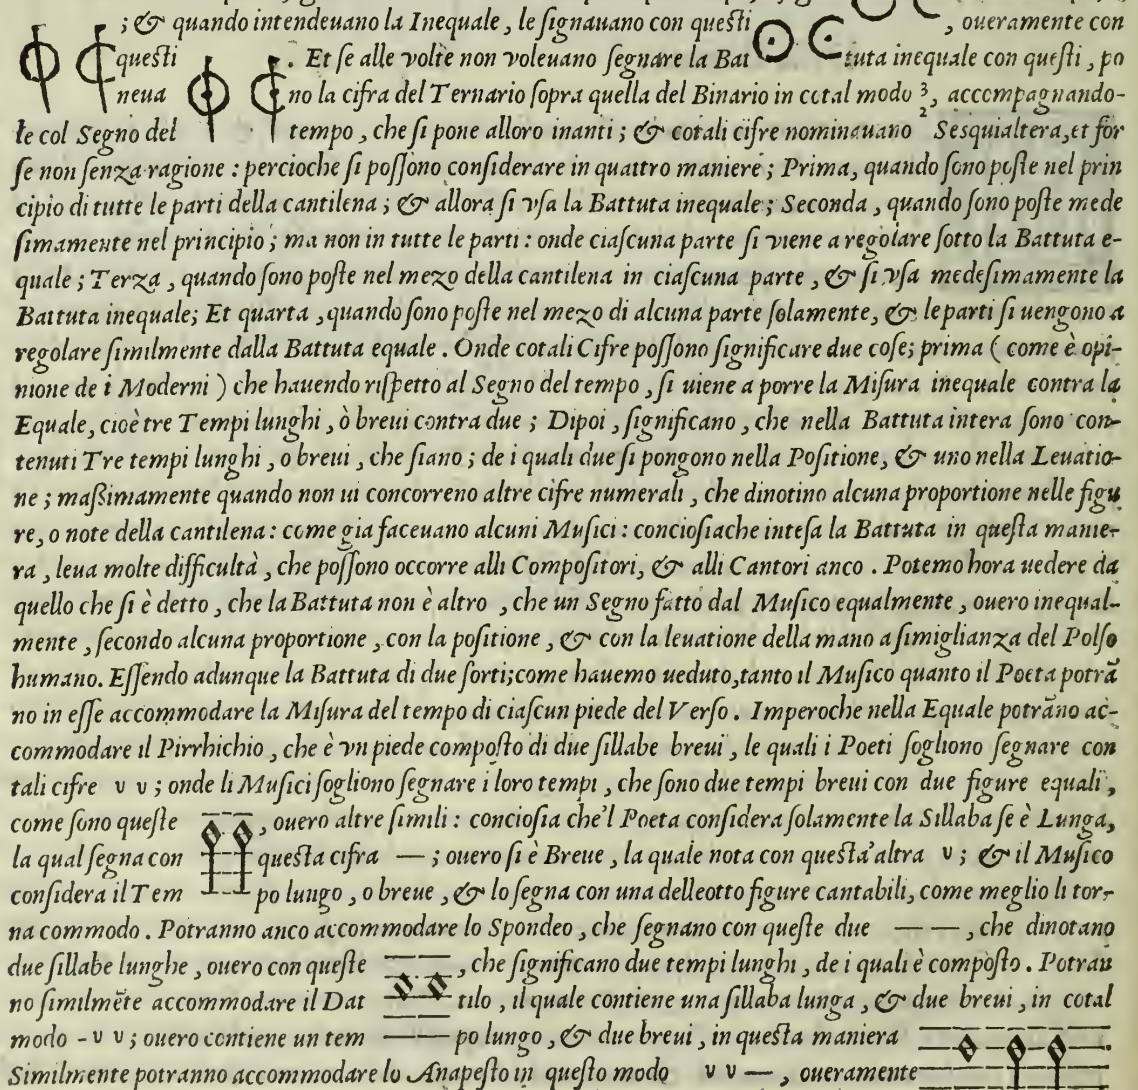 ; & quando intendeuano la Inequale, le ſignauano con queſti , oueramente con
queſti . Et ſe alle volte non voleuano ſegnare la Bat tuta inequale con queſti, po
neua no la cifra del Ternario ſopra quella del Binario in cotal modo 3/2, accompagnando-
le col Segno del tempo, che ſi pone alloro inanti; & cotali cifre nominauano Sesquialtera, et for
ſe non ſenza ragione: percioche ſi poſſono conſiderare in quattro maniere; Prima, quando ſono poſte nel prin
cipio di tutte le parti della cantilena; & allora ſi vſa la Battuta inequale; Seconda, quando ſono poſte mede
ſimamente nel principio; ma non in tutte le parti: onde ciaſcuna parte ſi viene a regolare ſotto la Battuta e-
quale; Terza, quando ſono poſte nel mezo della cantilena in ciaſcuna parte, & ſi vſa medeſimamente la
Battuta inequale; Et quarta, quando ſono poſte nel mezo di alcuna parte ſolamente, & le parti ſi uengono a
regolare ſimilmente dalla Battuta equale. Onde cotali Cifre poſſono ſignificare due coſe; prima (come è opi-
nione de i Moderni) che hauendo riſpetto al Segno del tempo, ſi uiene a porre la Miſura inequale contra la
Equale, cioè tre Tempi lunghi, ò breui contra due; Dipoi, ſignificano, che nella Battuta intera ſono con-
tenuti Tre tempi lunghi, o breui, che ſiano; de i quali due ſi pongono nella Poſitione, & uno nella Leuatio-
ne; maßimamente quando non ui concorreno altre cifre numerali, che dinotino alcuna proportione nelle figu
re, o note della cantilena: come gia faceuano alcuni Muſici: concioſiache inteſa la Battuta in queſta manie-
ra, leua molte difficultà, che poſſono occorre alli Compoſitori, & alli Cantori anco. Potemo hora uedere da
quello che ſi è detto, che la Battuta non è altro, che un Segno fatto dal Muſico equalmente, ouero inequal-
mente, ſecondo alcuna proportione, con la poſitione, & con la leuatione della mano a ſimiglianza del Polſo
humano. Eſſendo adunque la Battuta di due ſorti; come hauemo ueduto, tanto il Muſico quanto il Poeta potrã
no in eſſe accommodare la Miſura del tempo di ciaſcun piede del Verſo. Imperoche nella Equale potrãno ac-
commodare il Pirrhichio, che è vn piede compoſto di due ſillabe breui, le quali i Poeti ſogliono ſegnare con
tali cifre v v; onde li Muſici ſogliono ſegnare i loro tempi, che ſono due tempi breui con due figure equali,
come ſono queſte , ouero altre ſimili: concioſia che'l Poeta conſidera ſolamente la Sillaba ſe è Lunga,
la qual ſegna con queſta cifra —; ouero ſi è Breue, la quale nota con queſta'altra v; & il Muſico
conſidera il Tem po lungo, o breue, & lo ſegna con una delleotto figure cantabili, come meglio li tor-
na commodo. Potranno anco accommodare lo Spondeo, che ſegnano con queſte due — —, che dinotano
due ſillabe lunghe, ouero con queſte , che ſignificano due tempi lunghi, de i quali è compoſto. Potran
no ſimilmẽte accommodare il Dat tilo, il quale contiene una ſillaba lunga, & due breui, in cotal
modo - v v; ouero contiene un tem po lungo, & due breui, in queſta maniera
Similmente potranno accommodare lo Anapeſto in queſto modo v v —, oueramente